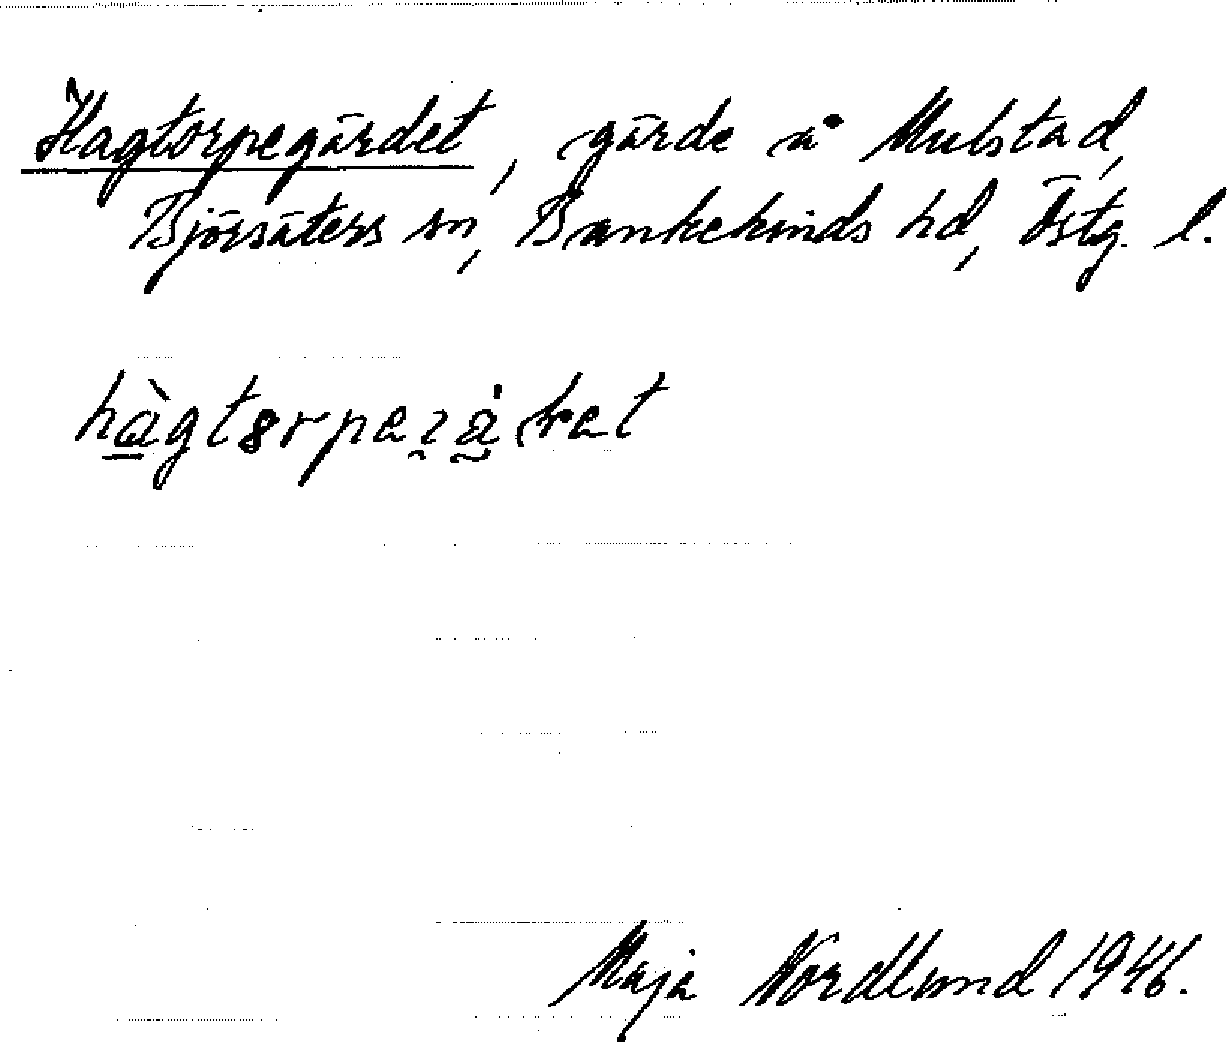 Hagtorpegärdet, gärde å Mulstad,
Björsäters sn, Bankekinds hd, Östg. l.
Maja Nordlund 1946.